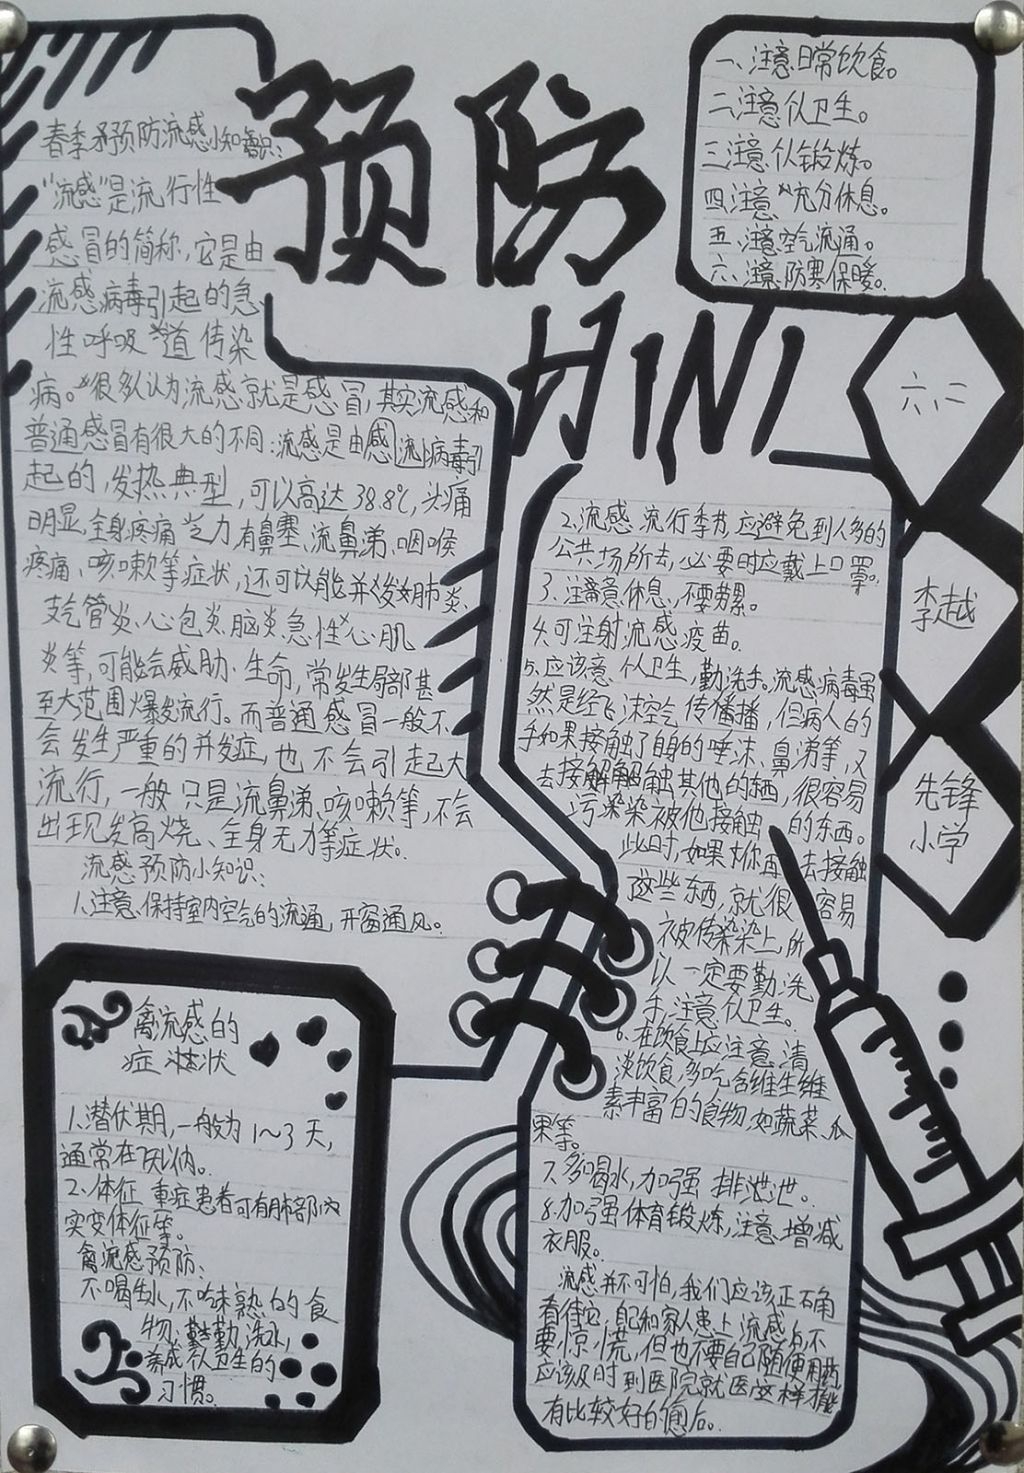 预防
H1N1
一、注意日常饮食。
二、注意个卫生。
三、注意个锻炼。
四、注意充分休息。
五、注意空气流通。
六、注意防寒保暖。
六、二
李越
先锋
小学
春季预防流感小知识:
“流感”是流行性
感冒的简称,它是由
流感病毒引起的急
性呼吸道传染
病。很多人认为流感就是感冒,其实流感和
普通感冒有很大的不同:流感是由感流上病毒引
起的,发热典型,可以高达38.8℃,头痛
明显,全身疼痛乏力,有鼻塞、流鼻涕、咽喉
疼痛、咳嗽等症状,还可以能并发如肺炎、
支气管炎、心包炎、脑炎、急性心肌
炎等,可能会威胁生命,常发生局部甚
至大范围爆发流行。而普通感冒一般不
会发生严重的并发症,也不会引起大
流行,一般只是流鼻涕、咳嗽等,不会
出现发高烧、全身无力等症状。
流感预防小知识:
1.注意保持室内空气的流通,开窗通风。
2.流感流行季节,应避免到人多的
公共场所去,必要时应戴上口罩。
3.注意休息,不要劳累。
4.可注射流感疫苗。
5.应该意个卫生,勤洗手。流感病毒虽
然是经飞沫空气传播播,但病人的
手如果接触了自身的唾沫、鼻涕等,又
去接解触其他的东西,很容易
污染染被他接触的东西。
此时,如果你再去接触
这些东西,就很容易
被传染染上,所
以一定要勤洗
手,注意个卫生。
6.在饮食上应注意清
淡饮食,多吃含维生维
素丰富的食物,如蔬菜、瓜
果等。
7.多喝水,加强排泄。
8.加强体育锻炼,注意增减
衣服。
流感并不可怕,我们应该正确
看待它,自己和家人患上流感后,不
要惊慌,但也不要自己随便用药
应该及时到医院就医这样才能
有比较好的愈后。
禽流感的
症状
1.潜伏期,一般为1~3天,
通常在7天以内。
2.体征 重症患者可有肺部内
实变体征等。
禽流感预防:
不喝生水,不吃未熟的食
物;勤洗水,
养成个卫生的
习惯。